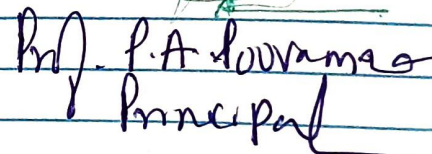 Prof. P.A. Poovamma
Principal